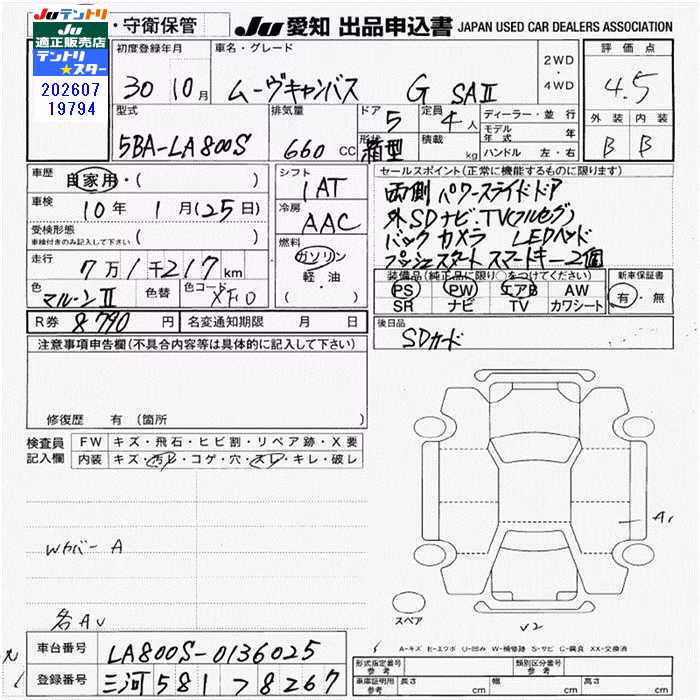 Juテントリ
Ju
適正販売店
テントリ
★スター
202607
19794
・守衛保管
Ju 愛知 出品申込書 JAPAN USED CAR DEALERS ASSOCIATION
初度登録年月
30 10月
車名・グレード
ムーヴキャンバス G SAⅡ
2WD
・
4WD
評価点
4.5
外装 内装
B B
型式
5BA-LA800S
排気量
660 cc
ドア
5
形状
箱型
定員
4人
積載
kg
ディーラー・並行
モデル年式 年
ハンドル 左・右
車歴
自家用・( )
車検
10年 1月(25日)
受検形態
車検付きのみ記入して下さい ( )
走行
7万1千217km
色
マルーンⅡ
色替
色コード
XF0
シフト
IAT
冷房
AAC
燃料
ガソリン
軽・油
セールスポイント(正常に機能するものに限ります)
両側パワースライドドア
外SDナビ、TV(フルセグ)
バックカメラ LEDヘッド
プッシュスタート スマートキー2個
装備品(純正品に限り○をつけてください)
PS PW エアB AW
SR ナビ TV カワシート
新車保証書
有・無
R券 8,790 円
名変通知期限 月 日
後日品
SDカード
注意事項申告欄(不具合内容等は具体的に記入して下さい)
修復歴 有 (箇所 )
検査員
記入欄
FW キズ・飛石・ヒビ割・リペア跡・X要
内装 キズ・汚レ・コゲ・穴・スレ・キレ・破レ
Wカバー A
各AU
A1
スペア
V2
A-キズ E-エクボ U-凹み W-補修跡 S-サビ C-腐食 XX-交換済
車台番号 LA800S-0136025
登録番号 三河581フ8267
形式指定番号
参考
類別区分番号
参考
車庫証明用
参考
長さ cm
幅 cm
高さ cm